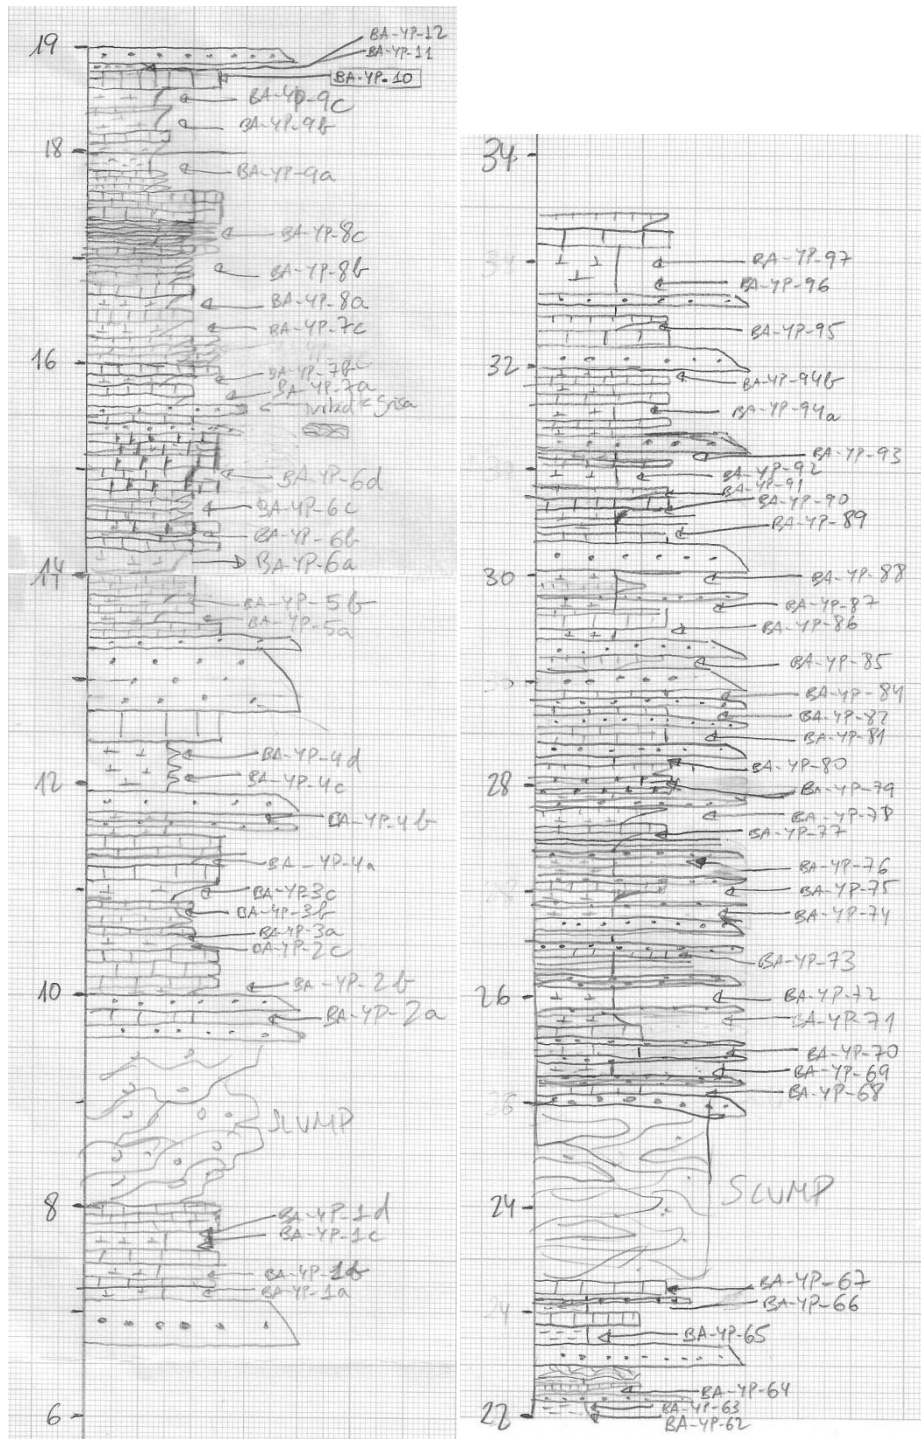 19
BA-YP-12
BA-YP-11
BA-YP-10
BA-YP-9c
BA-YP-9b
18
BA-YP-9a
BA-YP-8c
BA-YP-8b
BA-YP-8a
BA-YP-7c
16
BA-YP-7b
BA-YP-7a
BA-YP-6d
BA-YP-6c
BA-YP-6b
BA-YP-6a
14
BA-YP-5b
BA-YP-5a
BA-YP-4d
12
BA-YP-4c
BA-YP-4b
BA-YP-4a
BA-YP-3c
BA-YP-3b
BA-YP-3a
BA-YP-2c
10
BA-YP-2b
BA-YP-2a
SLUMP
8
BA-YP-1d
BA-YP-1c
BA-YP-1b
BA-YP-1a
6
34
BA-YP-97
BA-YP-96
BA-YP-95
32
BA-YP-94b
BA-YP-94a
BA-YP-93
BA-YP-92
BA-YP-91
BA-YP-90
BA-YP-89
30
BA-YP-88
BA-YP-87
BA-YP-86
BA-YP-85
BA-YP-84
BA-YP-82
BA-YP-81
BA-YP-80
28
BA-YP-79
BA-YP-78
BA-YP-77
BA-YP-76
BA-YP-75
BA-YP-74
BA-YP-73
26
BA-YP-72
BA-YP-71
BA-YP-70
BA-YP-69
BA-YP-68
SLUMP
24
BA-YP-67
24
BA-YP-66
BA-YP-65
BA-YP-64
22
BA-YP-63
BA-YP-62